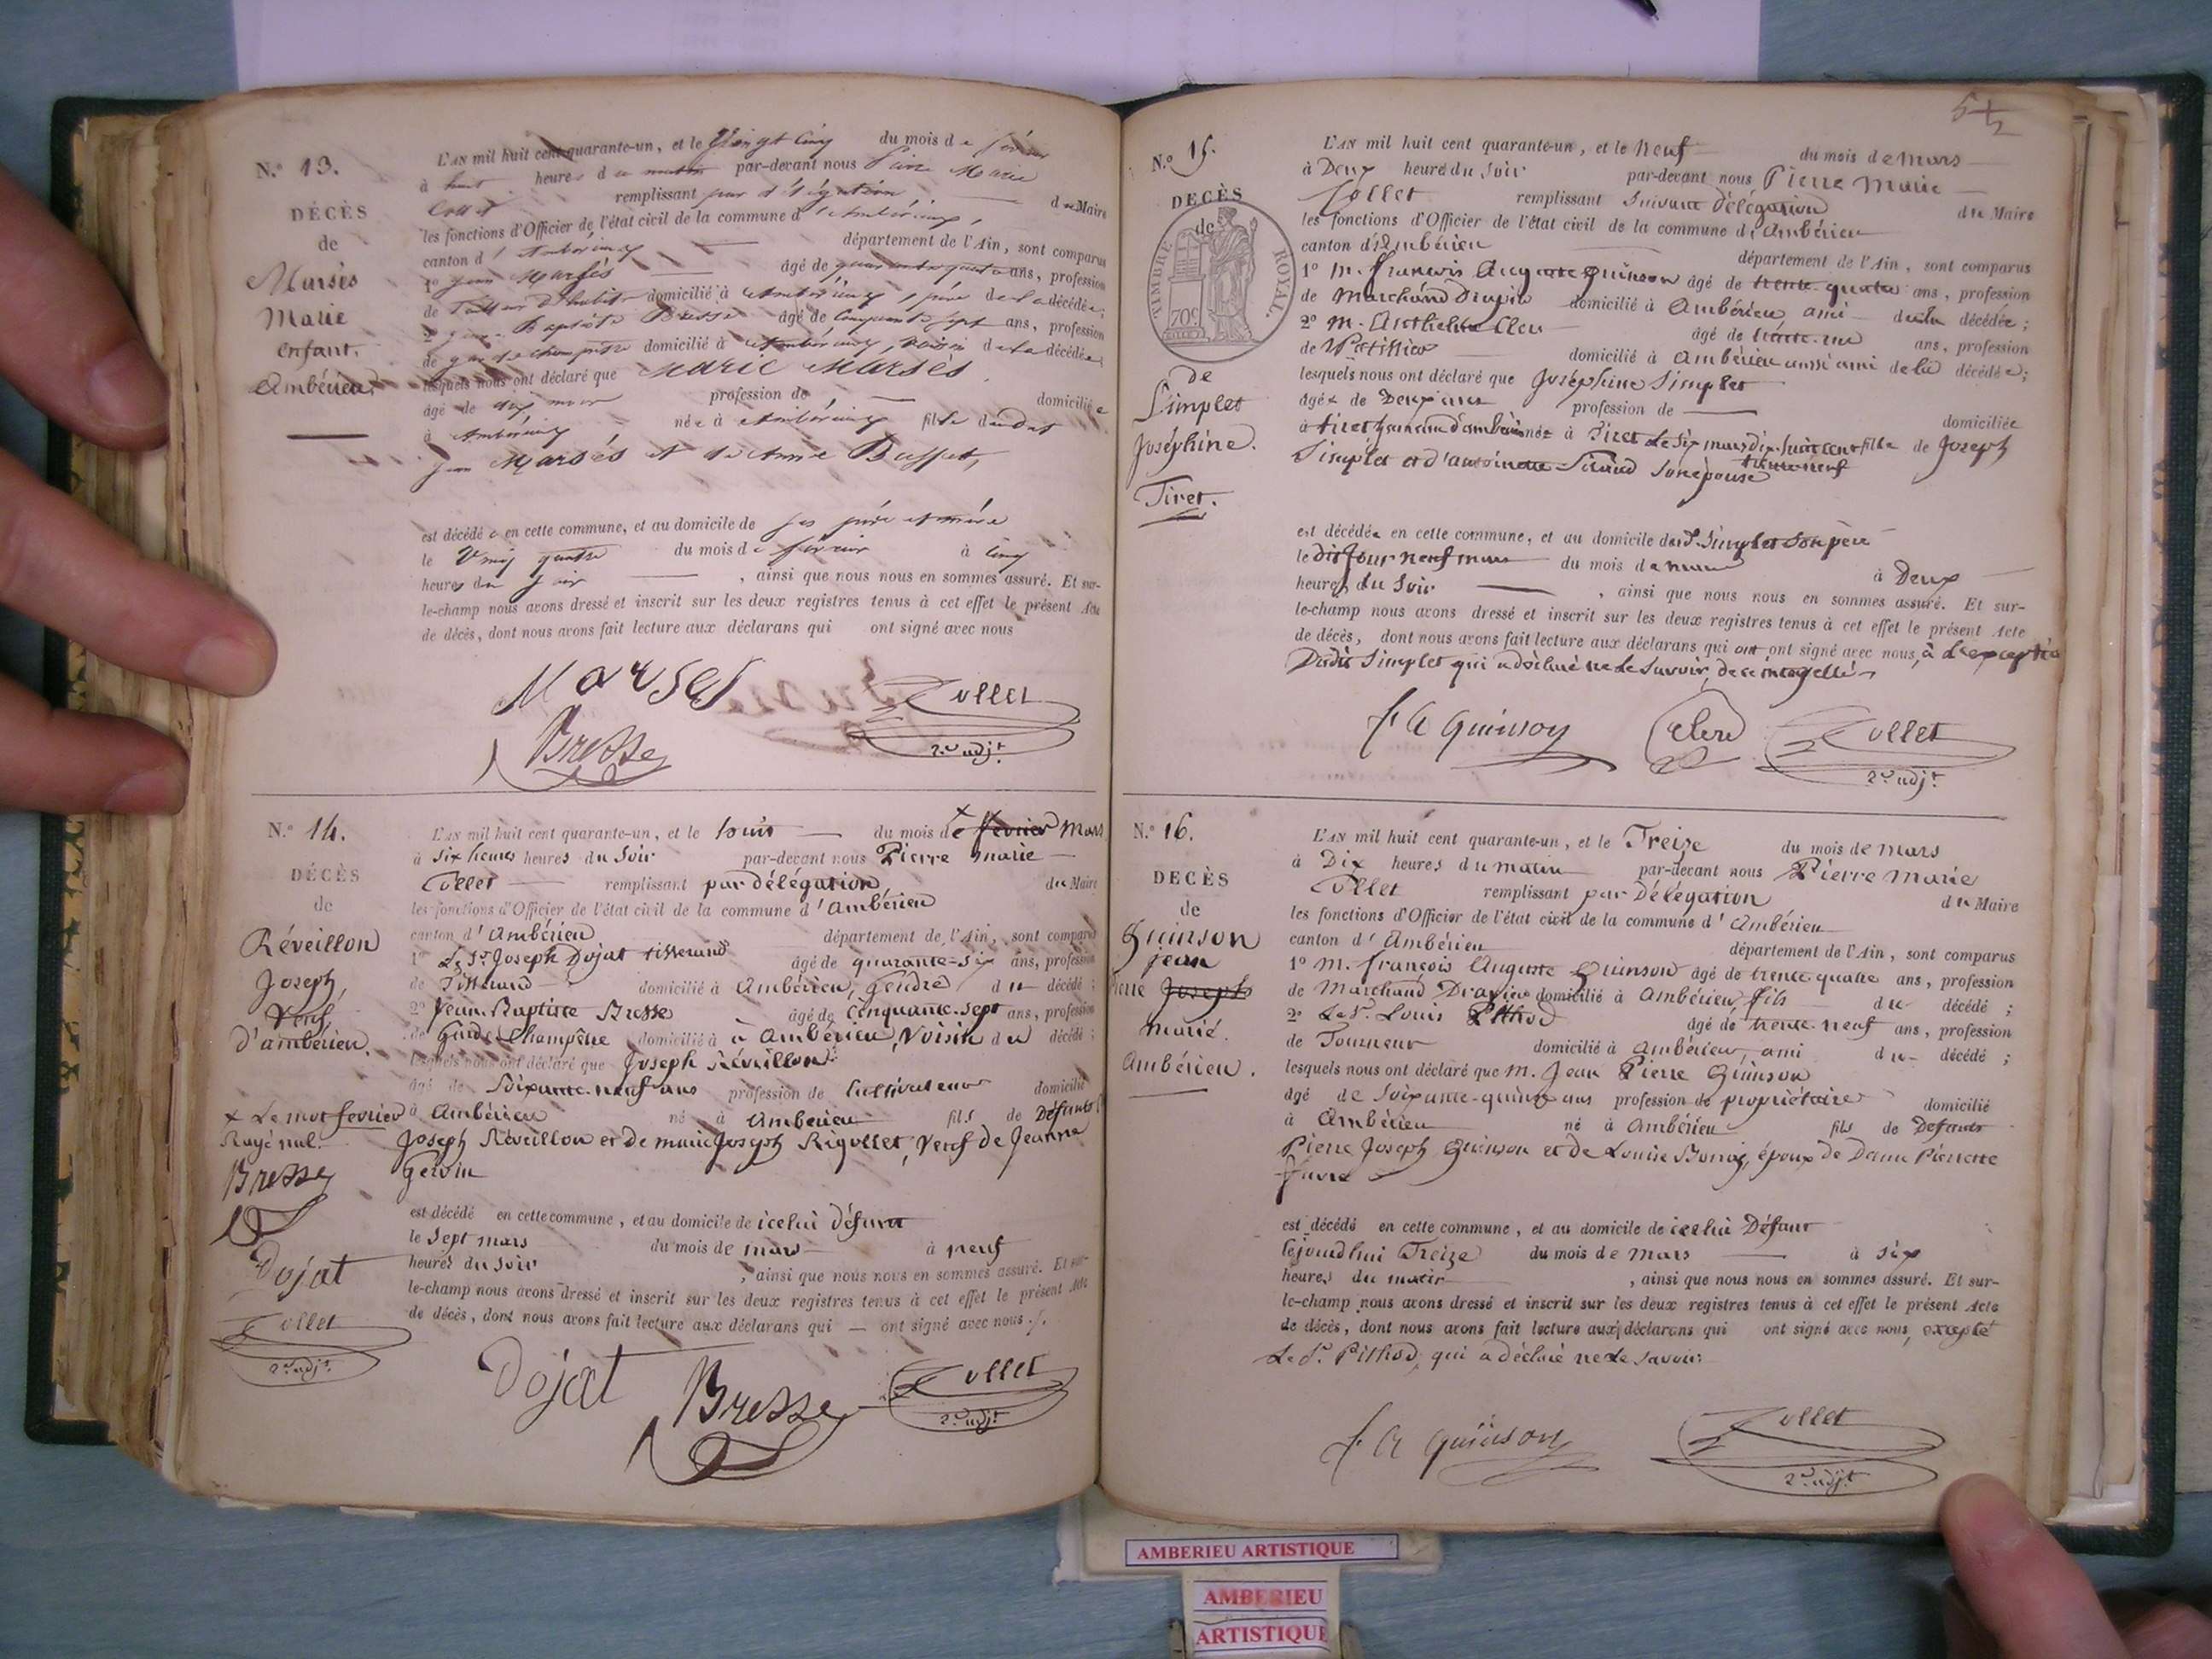 N.° 13.
DÉCÈS
de
Marsès
Marie
enfant.
Ambérieu.
L'AN mil huit cent quarante-un, et le Vingt Cinq du mois de février
à huit heures du matin par-devant nous Pierre Marie
Collet remplissant par délégation du Maire
les fonctions d'Officier de l'état civil de la commune d'Ambérieux,
canton d'Ambérieux département de l'Ain, sont comparus
1° Jean Marsès âgé de quarante quatre ans, profession
de Tailleur d'habits domicilié à Ambérieux, père de la décédée;
2° Jean Baptiste Bresse âgé de Cinquante sept ans, profession
de garde champêtre domicilié à Ambérieux, voisin de la décédée;
lesquels nous ont déclaré que Marie Marsès
âgé de profession de domiciliée
à Ambérieux née à Ambérieux fille dudit
Jean Marsès et de Annie Buffet,
est décédée en cette commune, et au domicile de ses père et mère
le Vingt quatre du mois de février à cinq
heures du soir, ainsi que nous nous en sommes assuré. Et sur-
le-champ nous avons dressé et inscrit sur les deux registres tenus à cet effet le présent Acte
de décès, dont nous avons fait lecture aux déclarans qui ont signé avec nous
Marses
Collet
Bresse
2d adjt
N.° 14.
DÉCÈS
de
Réveillon
Joseph,
Veuf
d'ambérieu.
x Le mot fevrier
Rayé nul.
Bresse
Dojat
Collet
2d adjt
L'AN mil huit cent quarante-un, et le huit du mois de x fevrier Mars
à six heures heures du soir par-devant nous Pierre marie
Collet remplissant par délégation du Maire
les fonctions d'Officier de l'état civil de la commune d'Ambérieu
canton d'Ambérieu département de l'Ain, sont comparus
1° Le Sr Joseph Dojat tisserand âgé de quarante-six ans, profession
de Tisserand domicilié à Ambérieu, Gendre du décédé;
2° Jean-Baptiste Bresse âgé de Cinquante-sept ans, profession
de Garde Champêtre domicilié à à Ambérieu, Voisin du décédé;
lesquels nous ont déclaré que Joseph Réveillon
âgé de Soixante-neuf ans profession de Cultivateur domicilié
à Ambérieu né à Ambérieu fils de Défunts
Joseph Réveillon et de marie Joseph Rigollet, Veuf de Jeanne
Gervin
est décédé en cette commune, et au domicile de icelui Défunt
le Sept mars du mois de mars à neuf
heures du soir, ainsi que nous nous en sommes assuré. Et sur-
le-champ nous avons dressé et inscrit sur les deux registres tenus à cet effet le présent Acte
de décès, dont nous avons fait lecture aux déclarans qui — ont signé avec nous ./.
Dojat Bresse Collet
2d adjt
5+2
N.° 15.
DECÈS
de
TIMBRE ROYAL.
70c
de
Simplet
Joséphine.
Tiret.
L'AN mil huit cent quarante-un, et le neuf du mois de mars
à Deux heures du soir par-devant nous Pierre Marie
Collet remplissant suivant délégation du Maire
les fonctions d'Officier de l'état civil de la commune d'Ambérieu
canton d'Ambérieu département de l'Ain, sont comparus
1° M. françois Auguste Guinson âgé de trente-quatre ans, profession
de Marchand Drapier domicilié à Ambérieu ami de la décédée;
2° M. Anthelme Clerc âgé de trente-un ans, profession
de Patissier domicilié à Ambérieu aussi ami de la décédée;
lesquels nous ont déclaré que Joséphine Simplet
âgée de Deux ans profession de domiciliée
à tiret hameau d'ambérieu née à Tiret le six mars dix-huit cent trente-neuf fille de Joseph
Simplet et d'antoinette Siraud son épouse
est décédée en cette commune, et au domicile du d. Simplet son père
le dit jour neuf mars du mois de mars à Deux
heures du Soir, ainsi que nous nous en sommes assuré. Et sur-
le-champ nous avons dressé et inscrit sur les deux registres tenus à cet effet le présent Acte
de décès, dont nous avons fait lecture aux déclarans qui ont ont signé avec nous, à l'exception
Dudit Simplet qui a déclaré ne le savoir, de ce interpellé
f A Guinson Clerc Collet
2d adjt
N.° 16.
DECÈS
de
Guinson
jean
pierre Joseph
marié.
Ambérieu.
L'AN mil huit cent quarante-un, et le Treize du mois de mars
à Dix heures du matin par-devant nous Pierre Marie
Collet remplissant par Délégation du Maire
les fonctions d'Officier de l'état civil de la commune d'Ambérieu
canton d'Ambérieu département de l'Ain, sont comparus
1° M. françois Auguste Guinson âgé de trente quatre ans, profession
de Marchand Drapier domicilié à Ambérieu fils du décédé;
2° Le Sr. Louis Pithod âgé de trente-neuf ans, profession
de Tourneur domicilié à Ambérieu, ami du décédé;
lesquels nous ont déclaré que M. Jean Pierre Guinson
âgé de Soixante-quinze ans profession de propriétaire domicilié
à Ambérieu né à Ambérieu fils de Defunts
Pierre Joseph Guinson et de Louise époux de Dame Pierrette
favre
est décédé en cette commune, et au domicile de icelui Défunt
cejourd'hui Treize du mois de Mars à Six
heures du matin, ainsi que nous nous en sommes assuré. Et sur-
le-champ nous avons dressé et inscrit sur les deux registres tenus à cet effet le présent Acte
de décès, dont nous avons fait lecture aux déclarans qui ont signé avec nous, excepté
Le Sr. Pithod, qui a déclaré ne le savoir.
f A Guinson Collet
2d adjt
AMBERIEU ARTISTIQUE
AMBERIEU
ARTISTIQUE